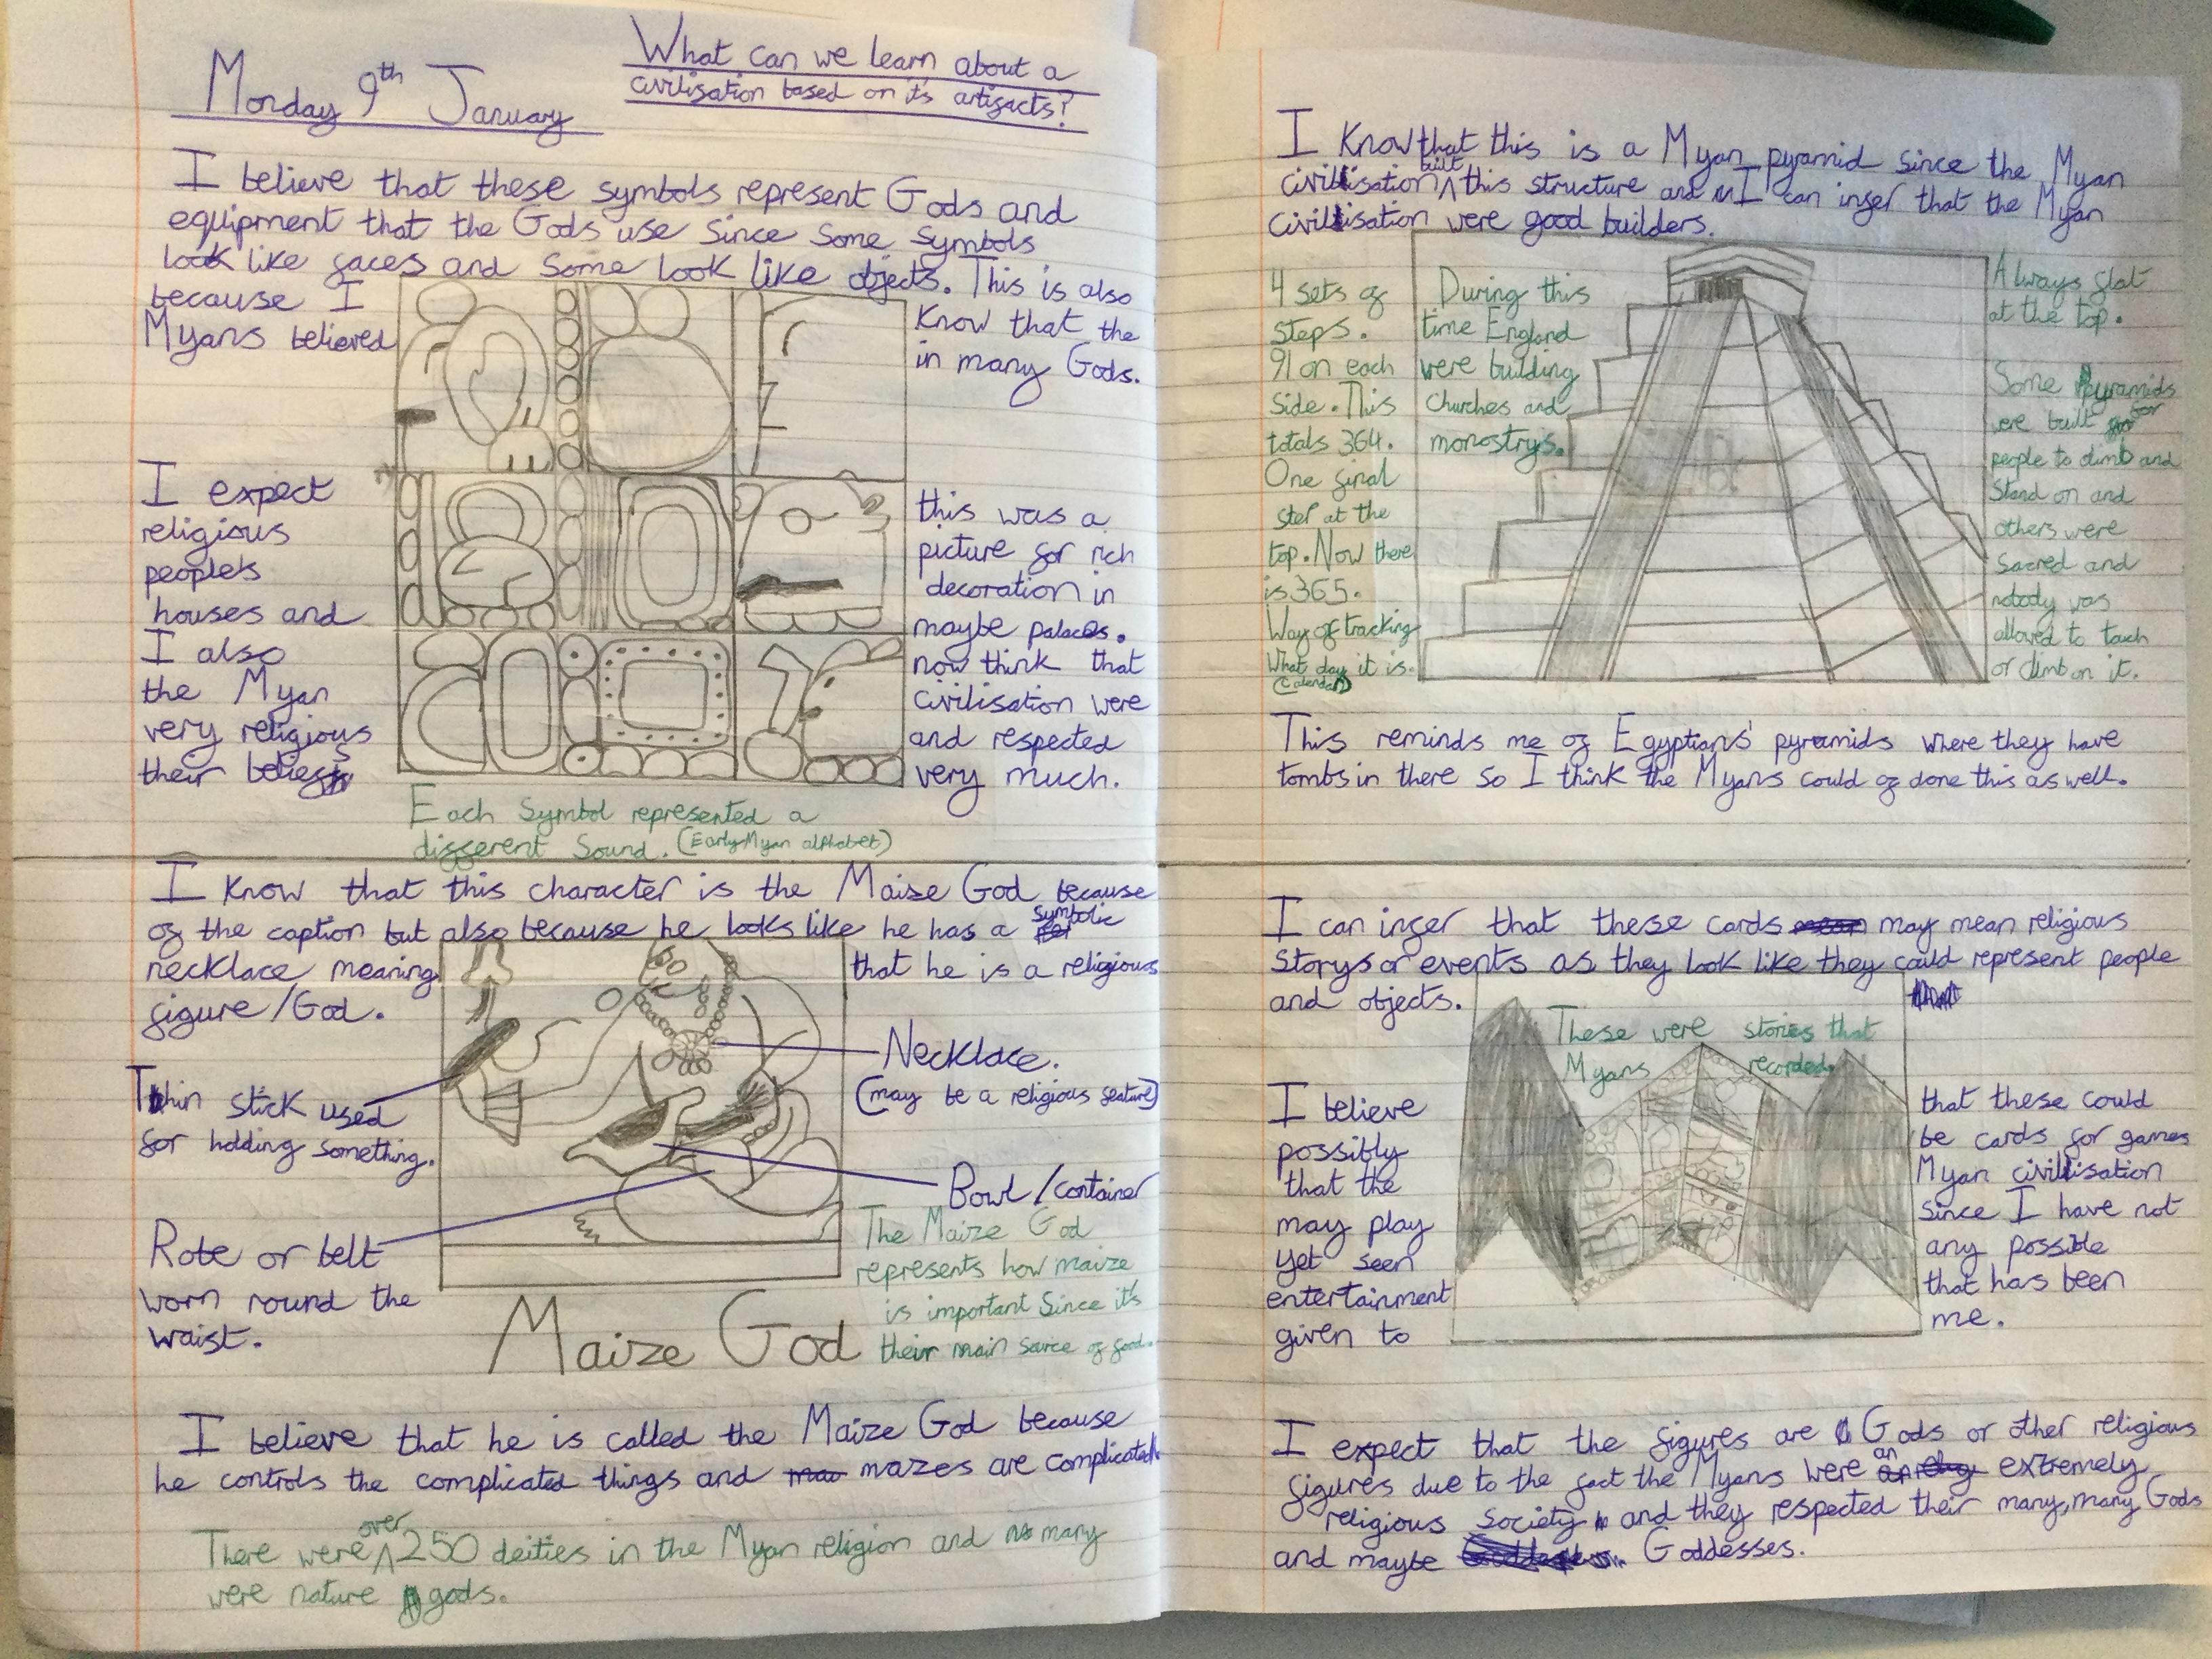 Monday 9th January
What can we learn about a
civilisation based on it's artifacts?
I believe that these symbols represent Gods and
equipment that the Gods use since some symbols
look like faces and some look like objects. This is also
because I know that the
Myans believed in many Gods.
I expect this was a
religious picture for rich
peoples decoration in
houses and maybe palaces.
I also now think that
the Myan civilisation were
very religious and respected
their beliefs very much.
Each symbol represented a
different sound. (Early Myan alphabet)
I know that this character is the Maize God because
of the caption but also because he looks like he has a symbolic
necklace meaning that he is a religious
figure/God.
Necklace.
(may be a religious feature)
Thin stick used
for holding something.
Bowl/container
Rote or belt
worn round the
waist.
The Maize God
represents how maize
is important since it's
their main source of food.
Maize God
I believe that he is called the Maize God because
he controls the complicated things and mazes are complicated
There were over 250 deities in the Myan religion and many
were nature gods.
I know that this is a Myan pyramid since the Myan
civilisation built this structure and I can infer that the Myan
civilisation were good builders.
4 sets of
steps.
91 on each
side. This
totals 364.
One final
step at the
top. Now there
is 365.
Way of tracking
what day it is.
(calendar)
During this
time England
were building
churches and
monostrys.
Always flat
at the top.
Some pyramids
were built for
people to climb and
stand on and
others were
sacred and
nobody was
allowed to touch
or climb on it.
This reminds me of Egyptians' pyramids where they have
tombs in there so I think the Myans could of done this as well.
I can infer that these cards may mean religious
storys or events as they look like they could represent people
and objects.
These were stories that
Myans recorded.
I believe that these could
possibly be cards for games
that the Myan civilisation
may play since I have not
yet seen any possible
entertainment that has been
given to me.
I expect that the figures are Gods or other religious
figures due to the fact the Myans were an extremely
religious society and they respected their many, many Gods
and maybe Goddesses.